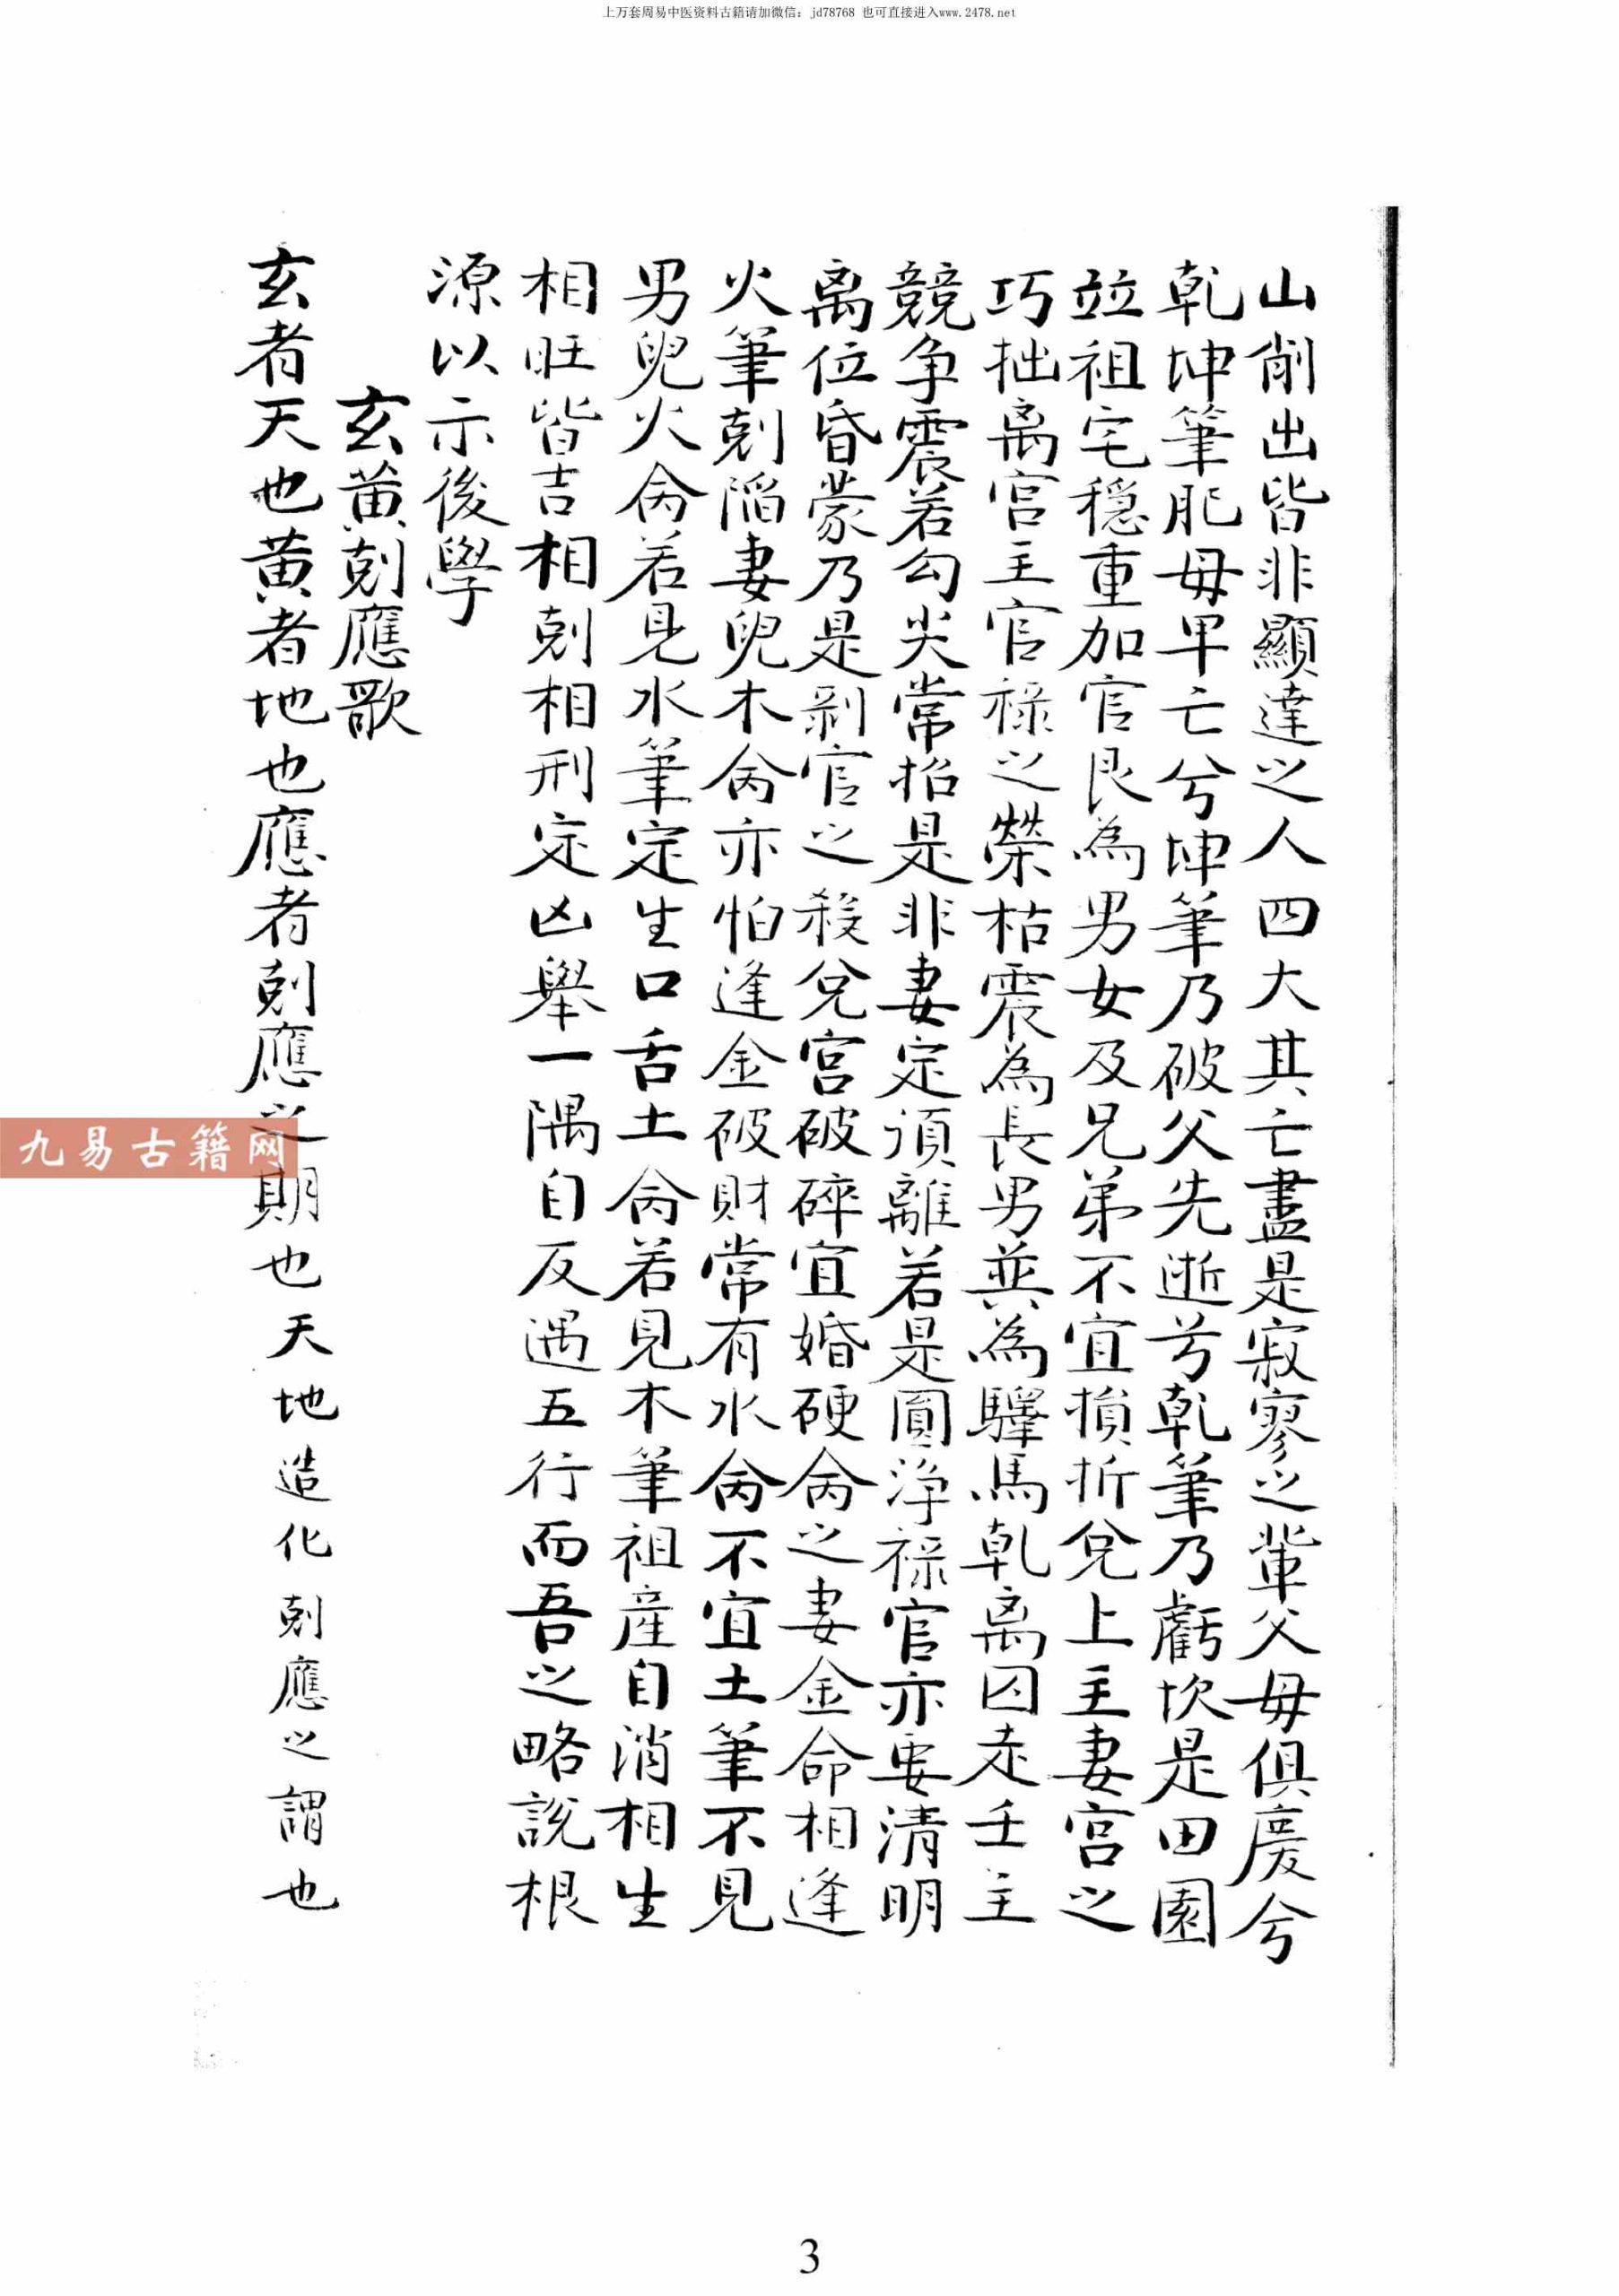 上万套周易中医资料古籍请加微信：jd78768 也可直接进入www.2478.net
山削出皆非顯達之人四大其亡盡是寂寥之輩父母俱慶兮
乾坤筆肥母早亡兮坤筆乃破父先逝兮乾筆乃虧坎是田園
竝祖宅穩重加官艮為男女及兄弟不宜損折兌上主妻宮之
巧拙离宮主官祿之榮枯震為長男兼為驛馬乾离囚走壬主
競争震若勾尖常招是非妻定須離若是圓淨祿官亦要清明
离位昏蒙乃是剝官之殺兌宮破碎宜婚硬命之妻金命相逢
火筆剋陷妻兒木命亦怕逢金破財常有水命不宜土筆不見
男兒火命若見水筆定生口舌土命若見木筆祖產自消相生
相旺皆吉相剋相刑定凶舉一隅自反遇五行而吾之略說根
源以示後學
玄黃剋應歌
玄者天也黃者地也應者剋應之期也天地造化剋應之謂也
九易古籍网
3